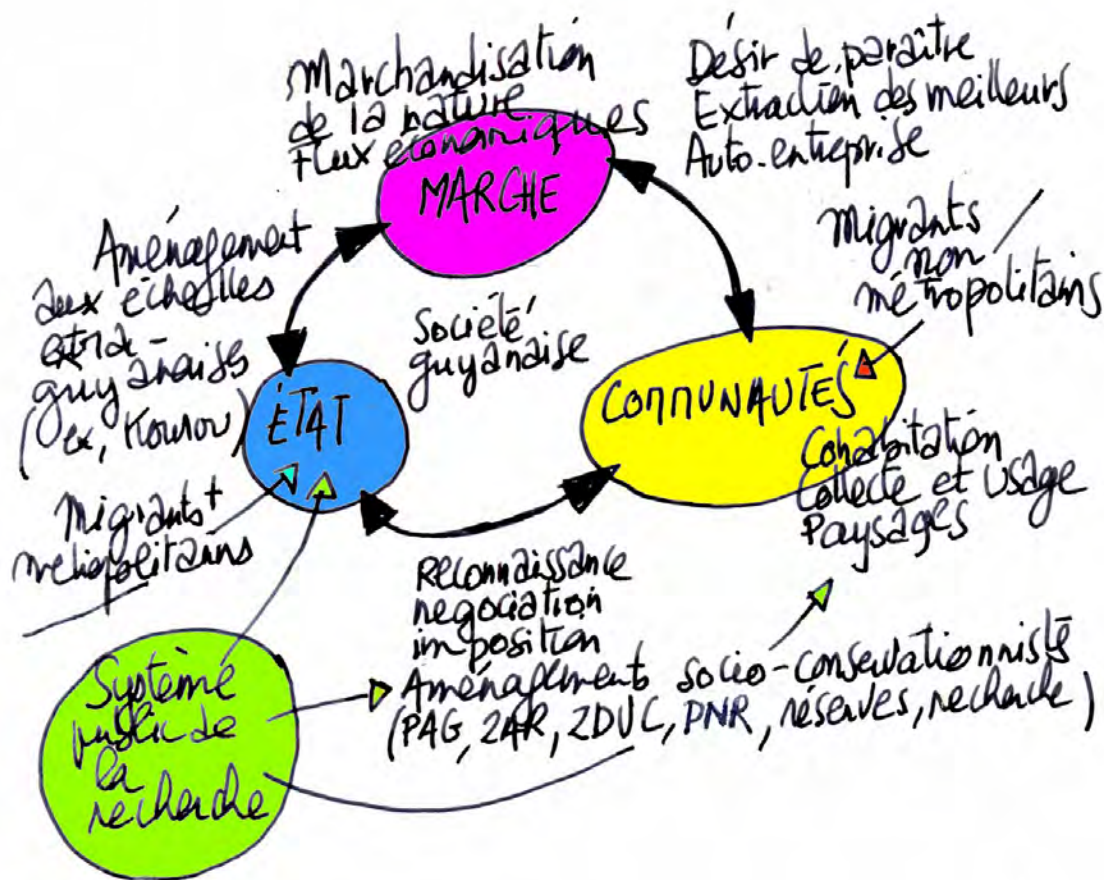 Marchandisation
de la nature
Flux économiques
MARCHE
Désir de paraître
Extraction des meilleurs
Auto-entreprise
Migrants
non
métropolitains
Aménagement
aux échelles
extra-
guyanaises
(ex, Kourou)
Société
guyanaise
ÉTAT
COMMUNAUTÉS
Cohabitation
Collecte et usage
Paysages
Migrants+
métropolitains
Reconnaissance
negociation
imposition
Aménagements socio-conservationnistes
(PAG, ZAR, ZDUC, PNR, réserves, recherche)
Système
public de
la
recherche